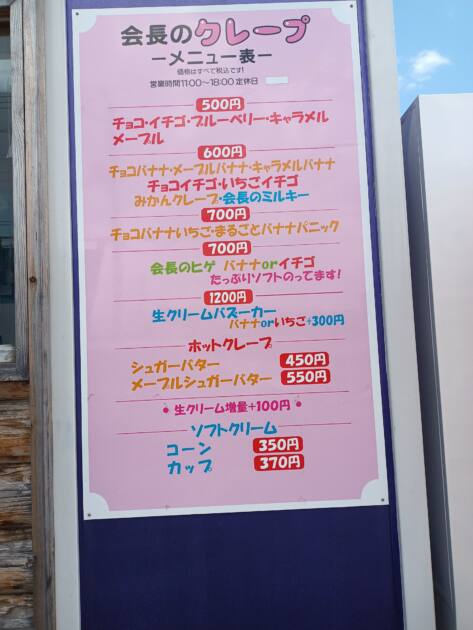 会長のクレープ
ーメニュー表ー
価格はすべて税込です!
営業時間11:00〜18:00 定休日
500円
チョコ・イチゴ・ブルーベリー・キャラメル
メープル
600円
チョコバナナ・メープルバナナ・キャラメルバナナ
チョコイチゴ・いちごイチゴ
みかんクレープ・会長のミルキー
700円
チョコバナナいちご・まるごとバナナパニック
700円
会長のヒゲ バナナorイチゴ
たっぷりソフトのってます!
1200円
生クリームバズーカー
バナナorいちご+300円
ホットクレープ
シュガーバター 450円
メープルシュガーバター 550円
生クリーム増量+100円
ソフトクリーム
コーン 350円
カップ 370円